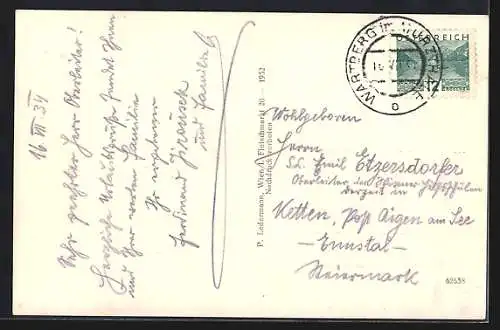 16. VII 34
Sehr geehrter Herr Oberleiter!
Herzliche Urlaubsgrüße sendet Ihnen
und Ihrer werten Familie
Ihr ergebener
Ferdinand
und Familie
P. Ledermann, Wien, I. Fleischmarkt 20 — 1932
Nachdruck verboten
WARTBERG IM MÜRZTHALE
ÖSTERREICH
Wohlgeboren
Herrn
Emil Etzersdorfer
Oberleiter der
derzeit in
Ketten, Post Aigen am See
Ennstal
Steiermark
62538